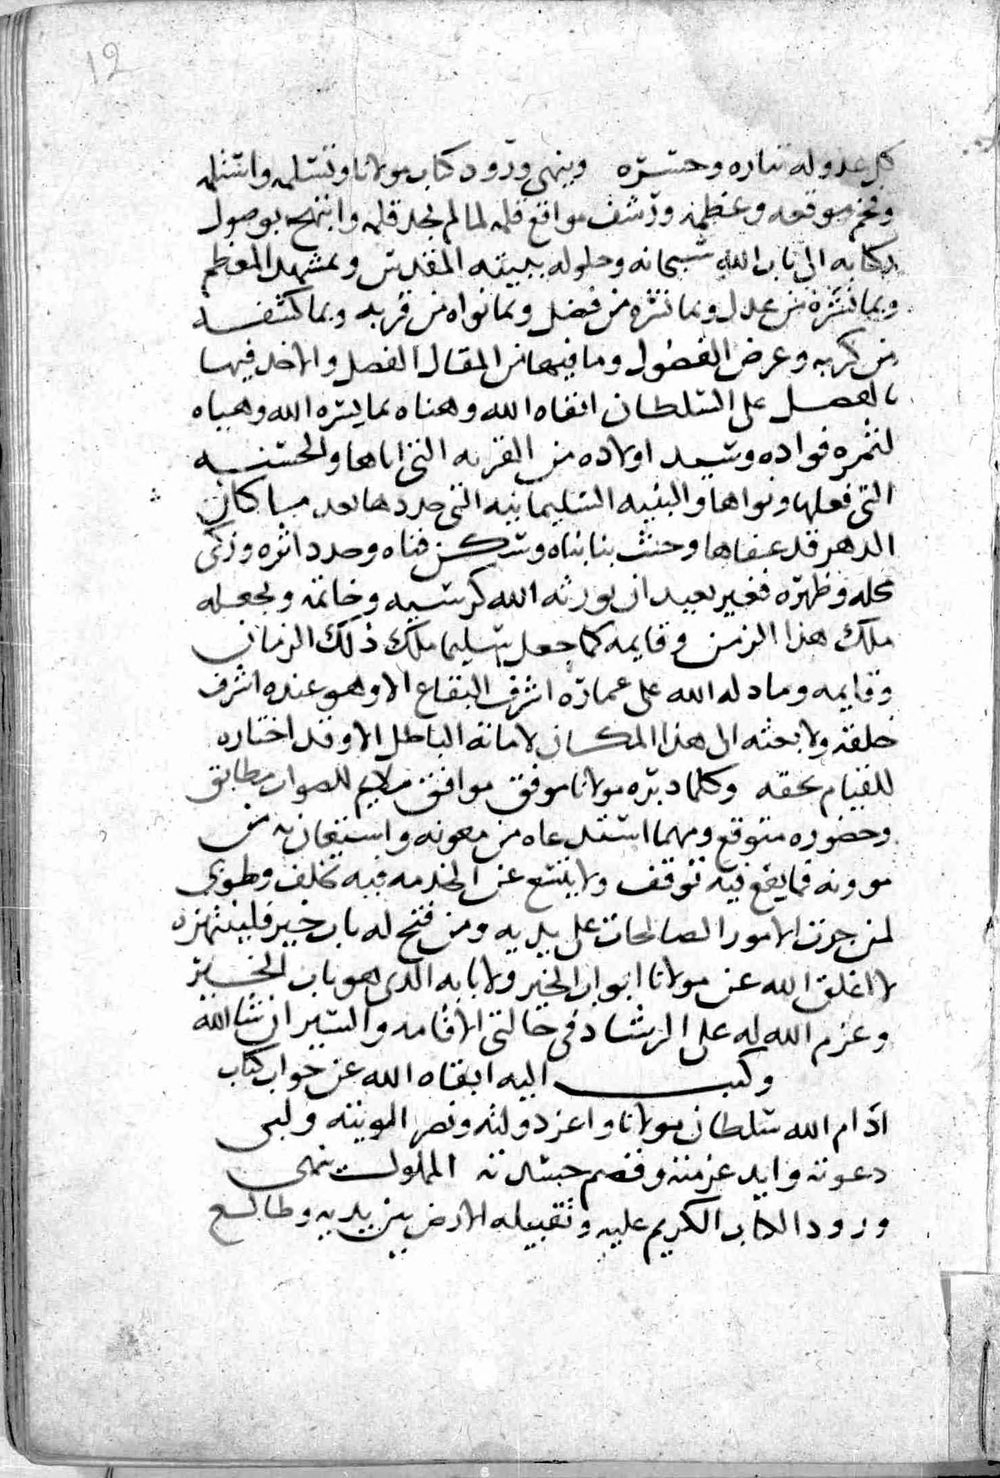 12
كل عدو له تباره وحسره وينهى ورود كتاب مولانا وتسلمه واستلمه
وفخم موقعه وعظمه ورشف مواقع قلمه لما لم يجد قلمه وابتهج بوصول
ركابه الى باب الله سبحانه وحلوله ببيته المقدس وبمشهد المعظم
وبما نشره من عدل وبما نثره من فضل وبما نواه من قربه وبما كشفه
من كربه وعرض الفصول وما فيها من المقال الفصل والاخد فيها
بالفصل على السلطان ابقاه الله وهناه بما يسره الله وهياه
لثمره فواده وسيد اولاده من القربه التي اتاها والحسنه
التي فعلها ونواها والبنيه السليمانيه التي جددها بعد ما كان
الدهر قد عفاها وحنث بنا بناه وسكن فناه وجدد اثره وزكى
محله وطهره فغير بعيد ان يورثه الله كرسيه وخاتمه ويجعله
ملك هذا الزمن وقايمه كما جعل سليما ملك ذلك الزمان
وقايمه وما دله الله على عمارة اشرف البقاع الا وهو عنده اشرف
خلقه ولا بعثه الى هذا المكان لاماتة الباطل الا وقد اختاره
للقيام بحقه وكلما دبره مولانا موفق موافق ملايم للصواب مطابق
وحضوره متوقع ومهما استدعاه من معونه واستعان به من
موونه فما يقع فيه توقف ولا يتسع عن الخدمه فيه تخلف وطوبى
لمن جرت الامور الصالحات على يديه ومن فتح له باب خير فلينتهزه
لا اغلق الله عن مولانا ابواب الخير ولا بابه الذي هو باب الخير
وعزم الله له على الرشاد في حالتي الاقامه والسير ان شا الله
وكتب اليه ابقاه الله عن جواب كتاب
ادام الله سلطان مولانا واعز دولته ونصر الويته ولبى
دعوته وايد عزمته وقصم حسدته المملوك ينهى
ورود الكتاب الكريم عليه وتقبيله الارض بين يديه وطالع